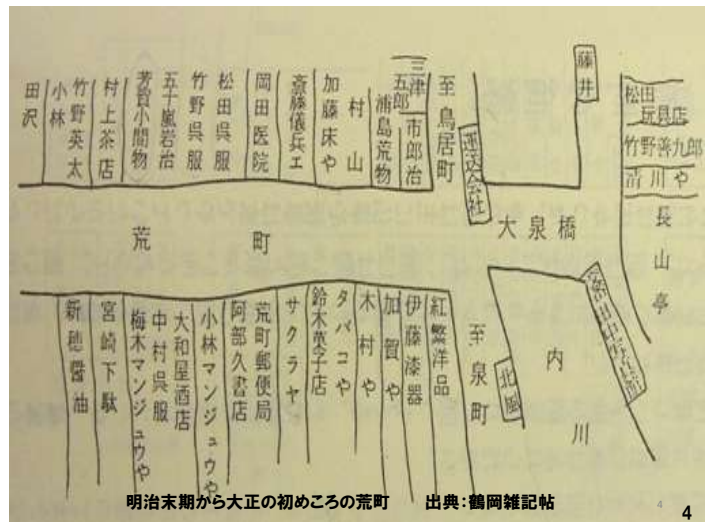 田沢
小林
竹野英太
村上茶店
芳賀小間物
五十嵐岩治
竹野呉服
松田呉服
岡田医院
斎藤儀兵エ
加藤床や
村山
浦島荒物
五郎
三津
市郎治
至鳥居町
運送会社
藤井
松田玩具店
竹野善九郎
清川や
長山亭
荒町
大泉橋
新穂醤油
宮崎下駄
梅木マンジュウや
中村呉服
大和屋酒店
小林マンジュウや
阿部久書店
荒町郵便局
サクラヤ
鈴木菓子店
タバコや
木村や
加賀や
伊藤漆器
紅繁洋品
至泉町
北風
内川
明治末期から大正の初めころの荒町　出典:鶴岡雑記帖
4
4